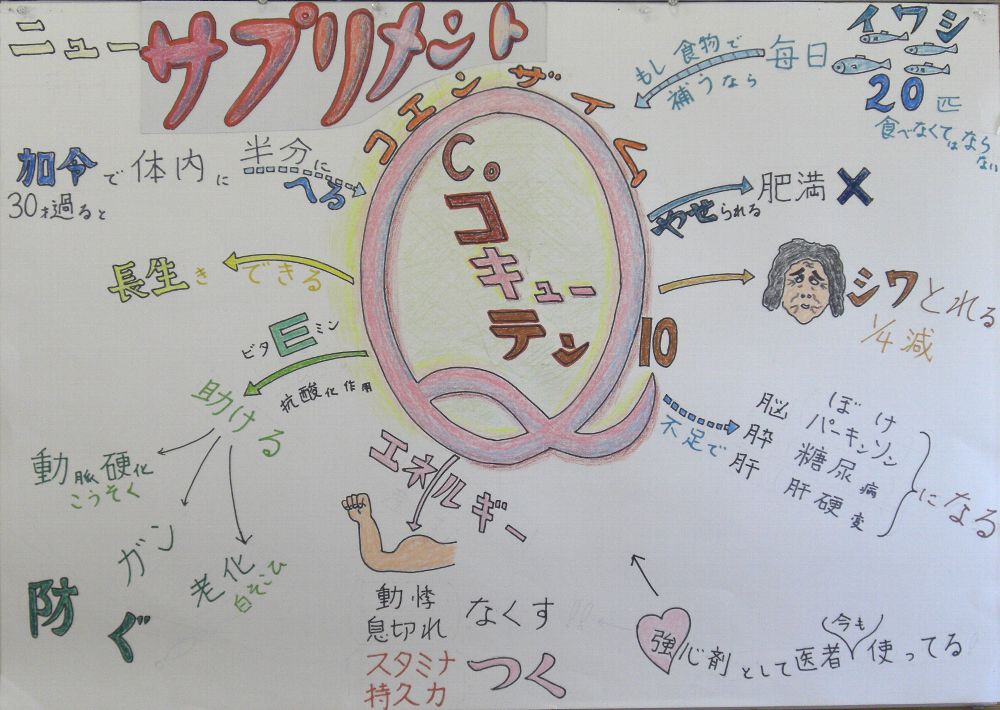 ニューサプリメント
コエンザイム
Co.
コ
キュー
テン
10
もし食物で
補うなら
毎日
イワシ
20匹
食べなくてはなら
ない
加令で体内に半分に
へる
30才過ると
やせられる
肥満×
長生きできる
シワとれる
1/4減
ビタEミン
抗酸化作用
助ける
動脈硬化
こうそく
ガン
老化
白そこひ
防ぐ
エネルギー
動悸
息切れ
なくす
スタミナ
持久力
つく
不足で
脳 ぼけ
パーキンソン
膵 糖尿病
肝 肝硬変
になる
強心剤として医者今も使ってる